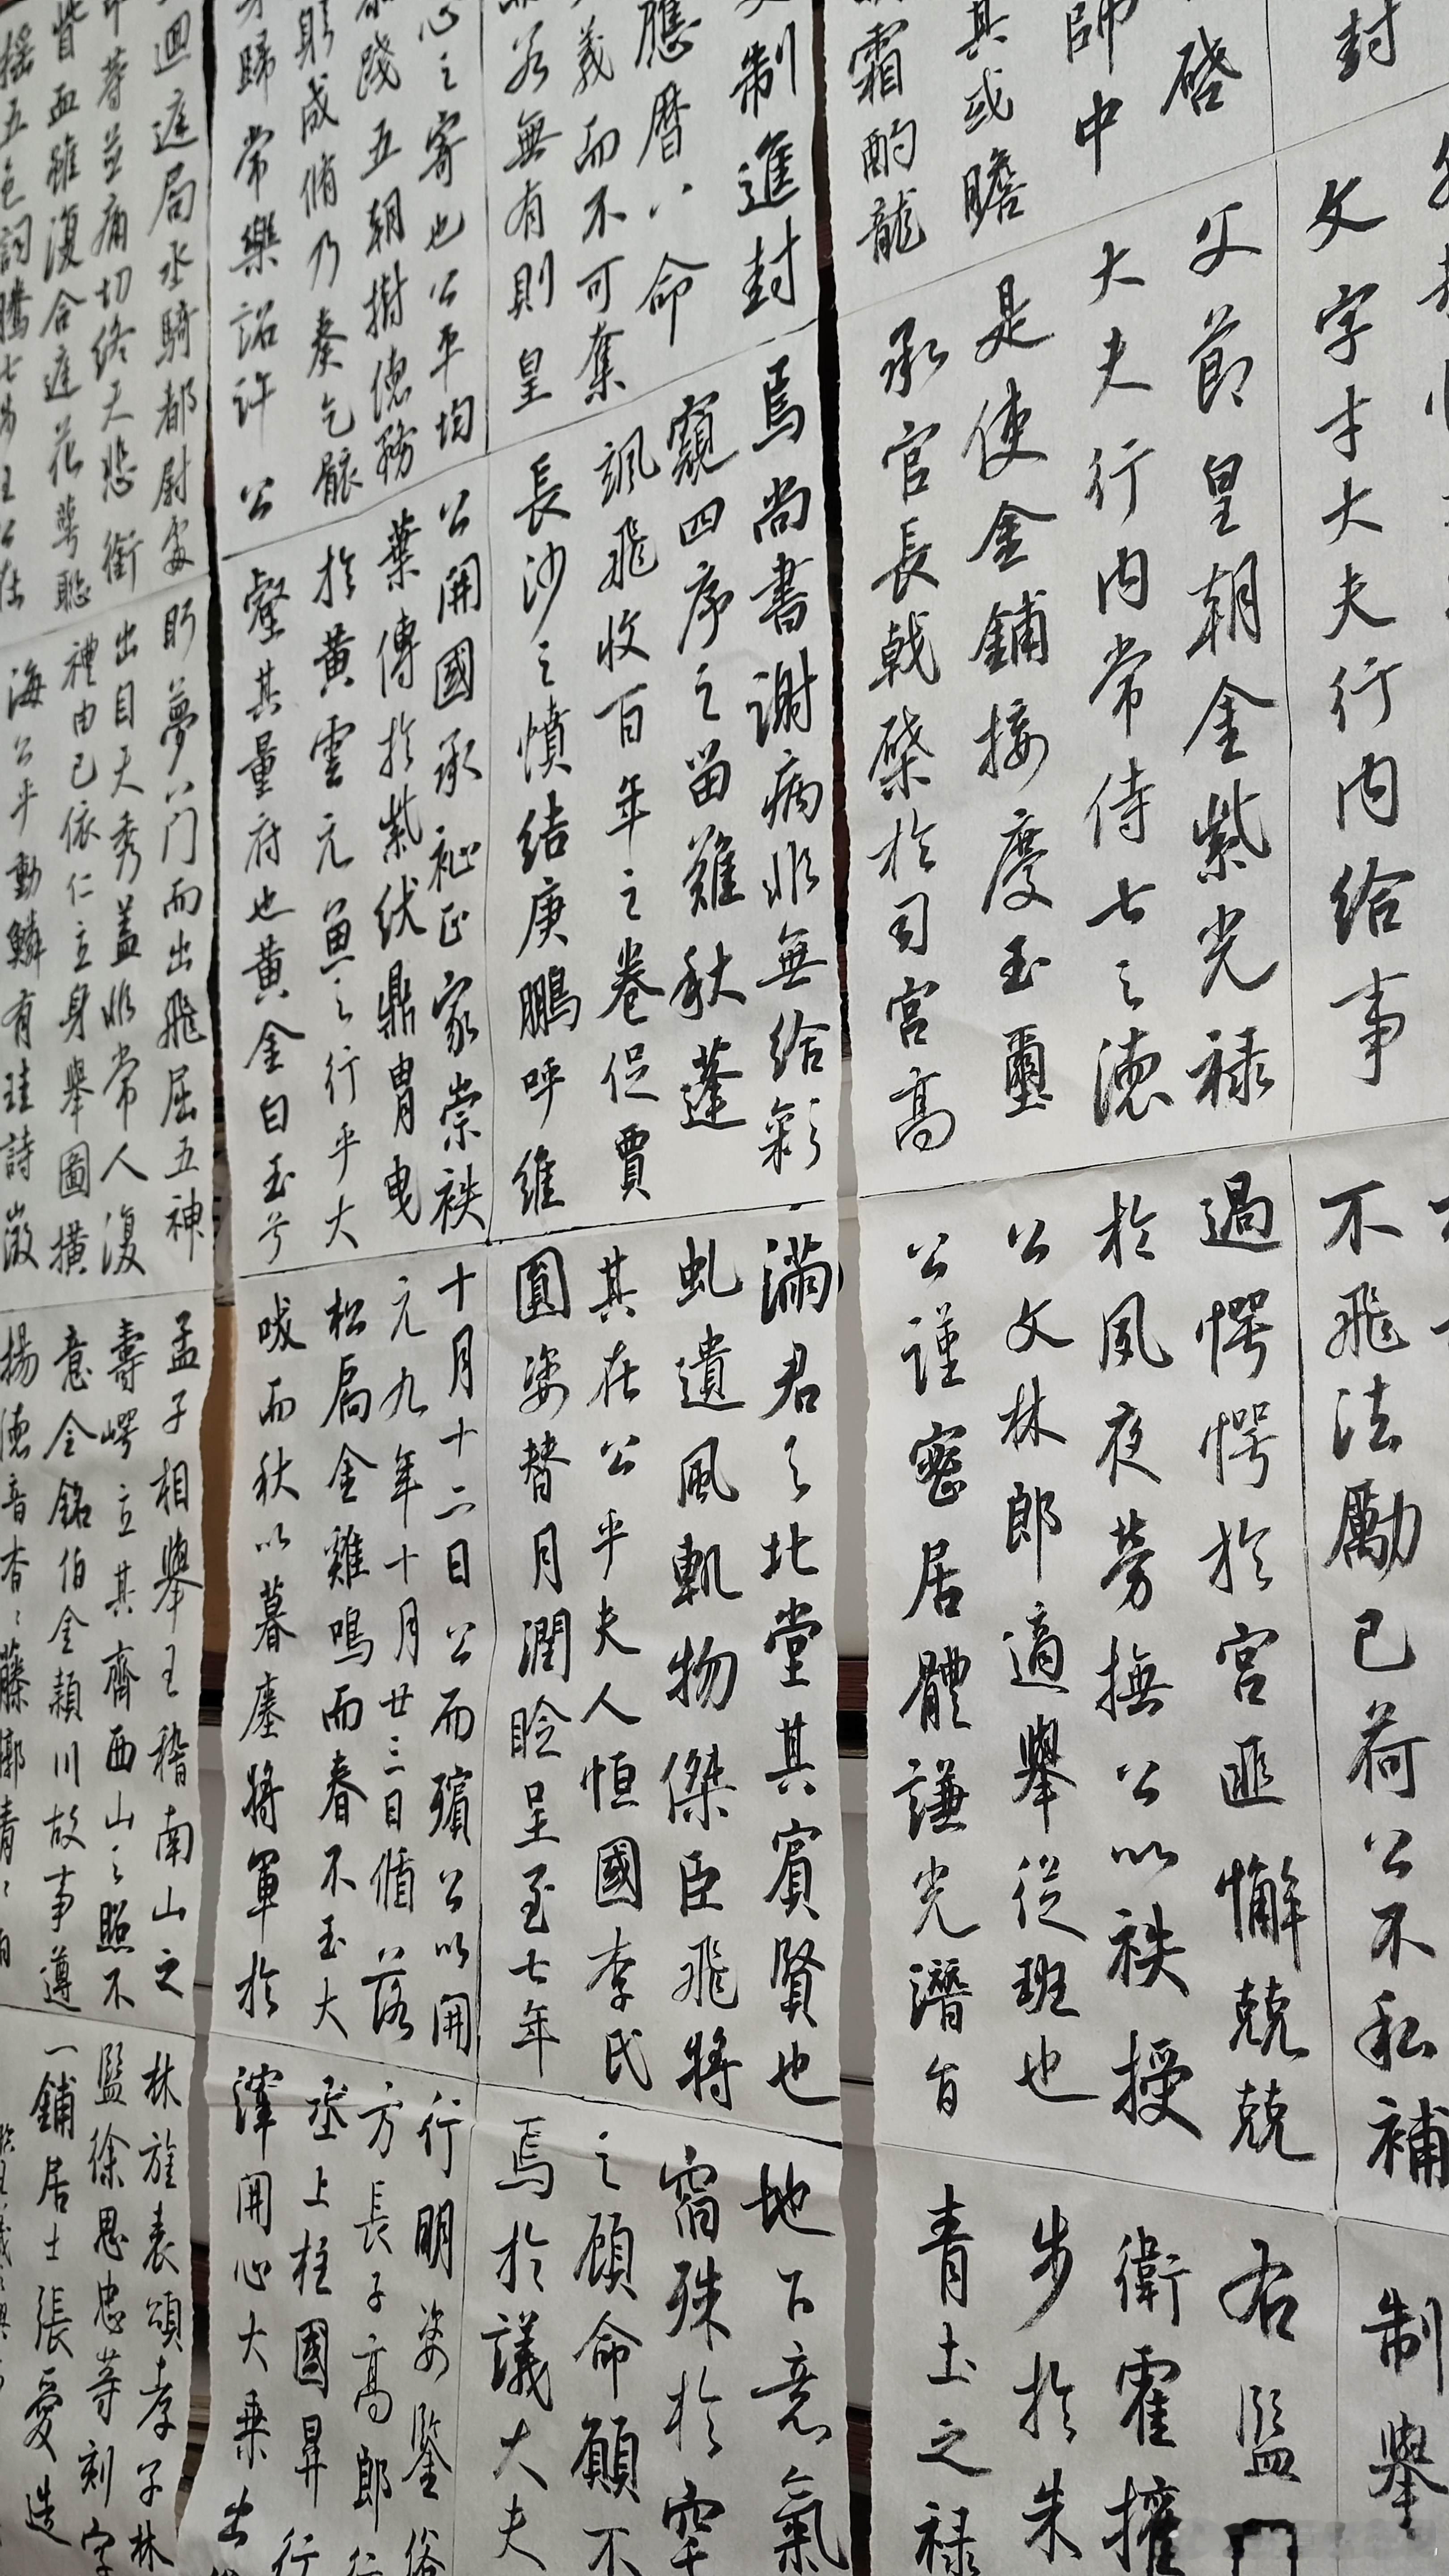 封
文字才大夫行内給事
不飛法勵己荷公不私補
制舉
啓
師中
其或瞻
霜酌龍
父節皇朝金紫光禄
大夫行内常侍七之德
是使金鋪接慶玉璽
承官長戟棨於司宮高
過愕愕於宮匪懈兢兢
於夙夜勞撫公以秩授
公文林郎適舉從班也
公謹密居體謙光潛旨
右監
衛霍擢
步於朱
青土之禄
制進封
應曆八命
義而不可奪
若無有則皇
焉尚書謝病非無給彩
窺四序之留難秋蓬
颯飛收百年之卷促賈
長沙之憤結庚鵬呼維
滿君之北堂其賓賢也
虬遺風軌物傑臣飛將
其在公乎夫人恒國李氏
圓姿替月潤臉呈至七年
地下意氣
窅殊於穸
之顧命顧不
焉於議大夫
心之寄也公平均
踐五朝樹德務
躬成脩乃奏乞骸
歸常樂詔許公
公開國承祉正家崇秩
葉傳於紫紱鼎胄曳
於黃雲元魚之行乎大
壑其量府也黃金白玉兮
十月十二日公而殯公以開
元九年十月廿三日循落
松扃金雞鳴而春不玉犬
吠而秋以暮塵將軍於
行明姿鑒俗
方長子高郎行
丞上柱國昇行
渾開心大乘出
迴逵局丞騎都尉處
蓉並痛切終天悲銜
眥血雖復合庭花萼聡
摇五色詞騰七步
盼夢八门而出飛屈五神
出目天秀盖非常人復
禮由已依仁立身舉圖橫
海公乎動鱗有珪詩激
孟子相舉王稽南山之
壽崿立其齊西山之照不
意全銘伯金穎川故事遵
揚德音杳
林旌表頌孝子林
監徐思忠等刻字
一鋪居士張愛造